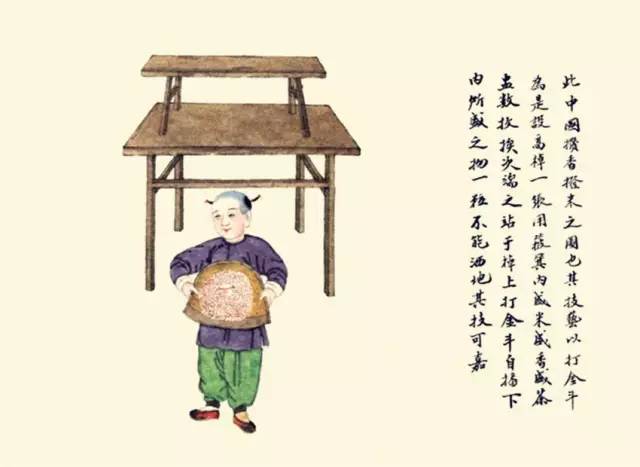 此中國香米之圖也其技藝以打金斗
為是設高棹一張用簸箕内盛米盛香盛茶
盅数枚挨次端之站于棹上打金斗自下
内所盛之物一粒不能洒地其技可嘉